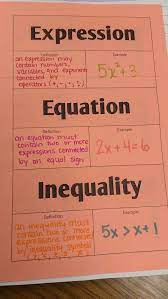 Expression
Definition
Example
an expression may
contain numbers,
variables, and exponents
connected by
operators (+,-,×,÷)
5x²+3
Equation
Definition
Example
an equation must
contain two or more
expressions connected
by an equal sign
2x+4=6
Inequality
Definition
Example
an inequality must
contain two or more
expressions connected
by inequality symbols
5x>x+1